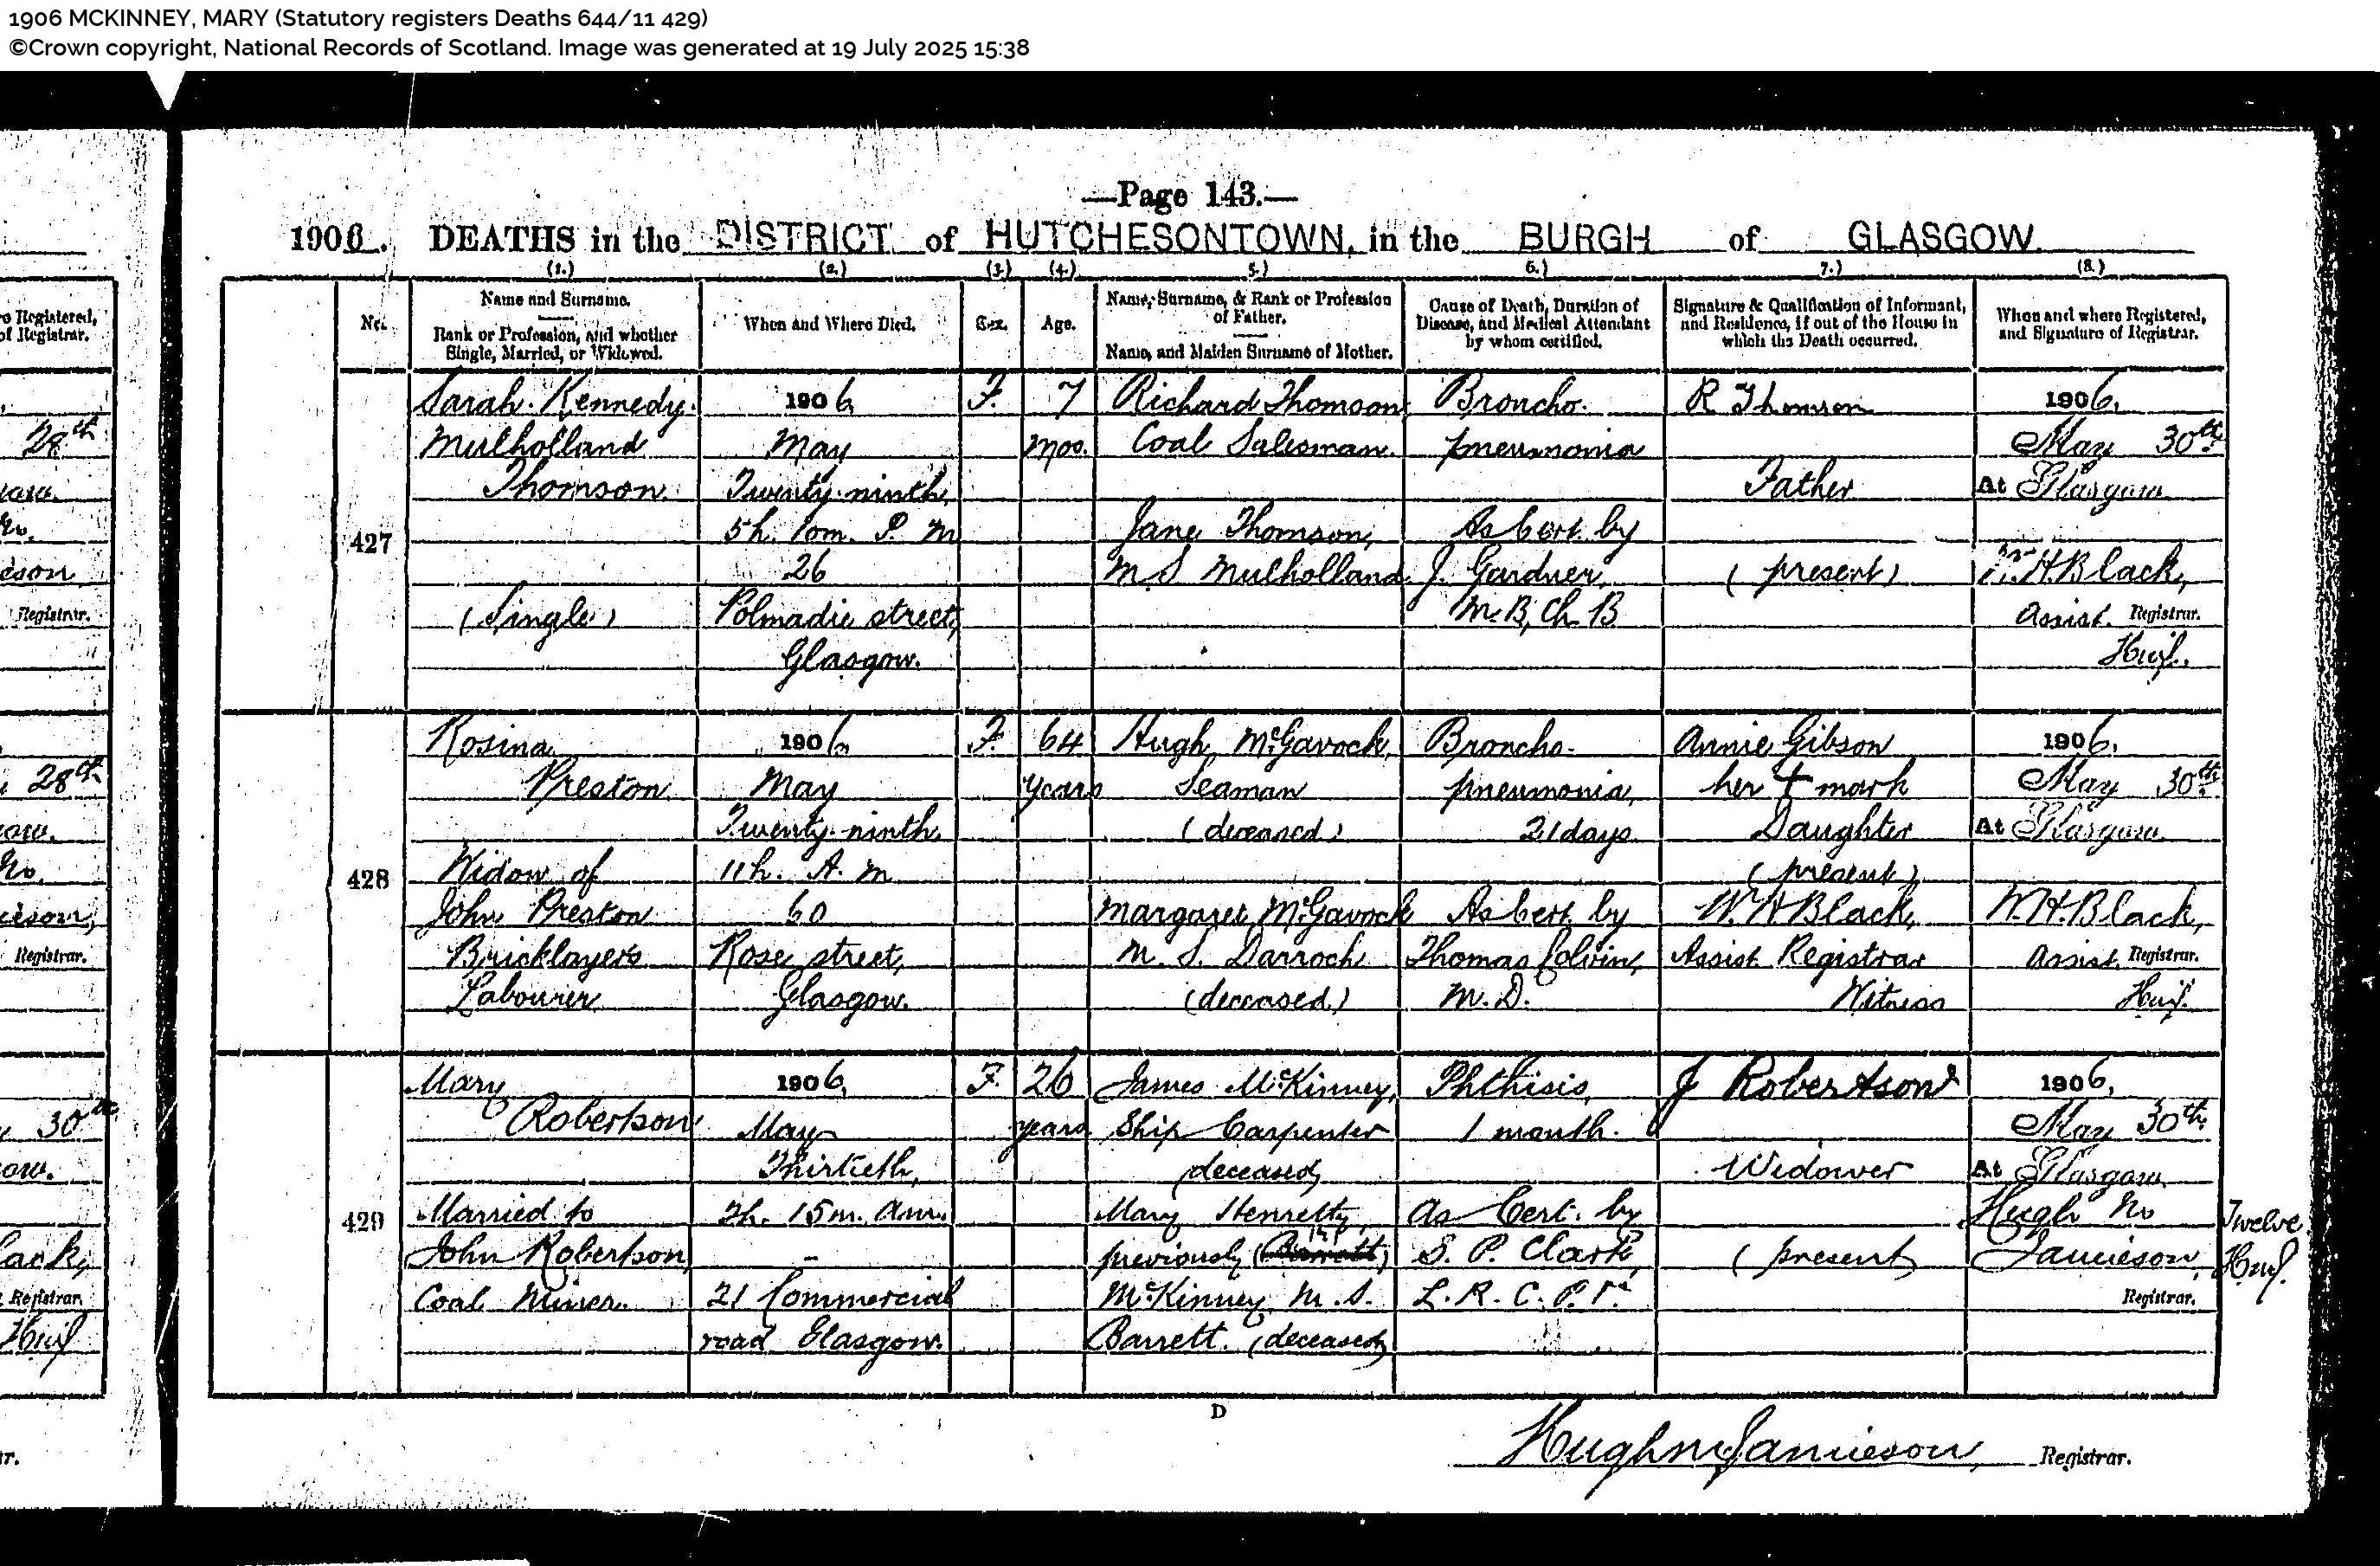 1906 MCKINNEY, MARY (Statutory registers Deaths 644/11 429)
©Crown copyright, National Records of Scotland. Image was generated at 19 July 2025 15:38
—Page 143.—
1906. DEATHS in the DISTRICT of HUTCHESONTOWN, in the BURGH of GLASGOW.
(1.) (2.) (3.) (4.) 5.) 6.) 7.) (8.)
No.
Name and Surname.
Rank or Profession, and whether
Single, Married, or Widowed.
When and Where Died.
Sex.
Age.
Name, Surname, & Rank or Profession
of Father.
Name, and Maiden Surname of Mother.
Cause of Death, Duration of
Disease, and Medical Attendant
by whom certified.
Signature & Qualification of Informant,
and Residence, if out of the House in
which the Death occurred.
When and where Registered,
and Signature of Registrar.
427
Sarah Kennedy
Mulholland
Thomson
(Single)
1906
May
Twenty ninth,
5h. 10m. P. M
26
Polmadie street,
Glasgow.
F.
7
mos.
Richard Thomson,
Coal Salesman.
Jane Thomson,
M S Mulholland
Broncho-
pneumonia
As Cert. by
J. Gardner,
M.B, Ch. B
R Thomson
Father
(present)
1906,
May 30th
At Glasgow
H. Black,
Assist. Registrar.
428
Rosina
Preston
Widow of
John Preston
Bricklayer's
Labourer
1906
May
Twenty ninth,
11h. A. M
60
Rose street,
Glasgow.
F.
64
years
Hugh McGavock,
Seaman
(deceased)
Margaret McGavock
M. S. Darroch
(deceased)
Broncho-
pneumonia,
21 days
As Cert. by
Thomas Colvin,
M. D.
Annie Gibson
her + mark
Daughter
(present)
W. H Black,
Assist. Registrar
Witness
1906,
May 30th
At Glasgow
W. H. Black,
Assist. Registrar.
429
Mary
Robertson
Married to
John Robertson,
Coal Miner.
1906,
May
Thirtieth,
2h. 15m. a.m.
-
21 Commercial
road Glasgow.
F.
26
years
James McKinney,
Ship Carpenter
(deceased)
Mary Henretty,
previously
McKinney M. S.
Barrett. (deceased)
Phthisis,
1 month.
As Cert. by
S. P. Clark,
L. R. C. P.
J Robertson
Widower
(present)
1906,
May 30th
At Glasgow
Hugh
Jamieson,
Registrar.
Twelve
D
Hugh Jamieson, Registrar.
28th
Registrar.
28th
Registrar.
30th
Registrar.